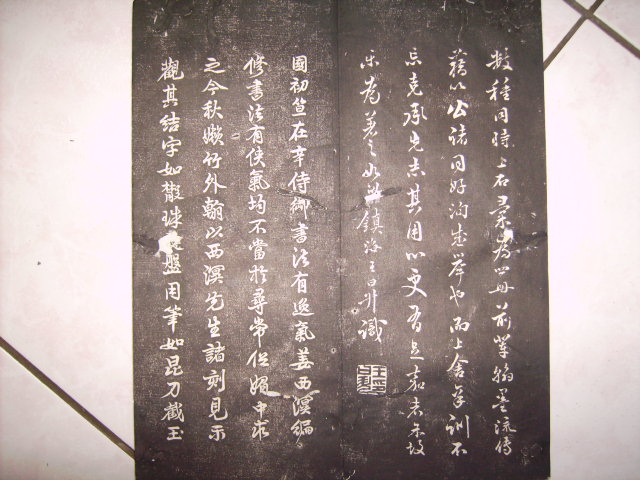 數種同時上石彙為四册前輩翰墨流傳
藉以公諸同好洵盛舉也而上舍孝訓不
忘克承先志其用心更有足嘉者余故
樂為之如此鎮海王日升識
國初笪在辛侍御書法有逸氣姜西溟編
修書法有俠氣均不當於尋常側媚中求
之今秋嬾竹外翰以西溟先生諸刻見示
觀其結字如散珠盤用筆如昆刀截玉